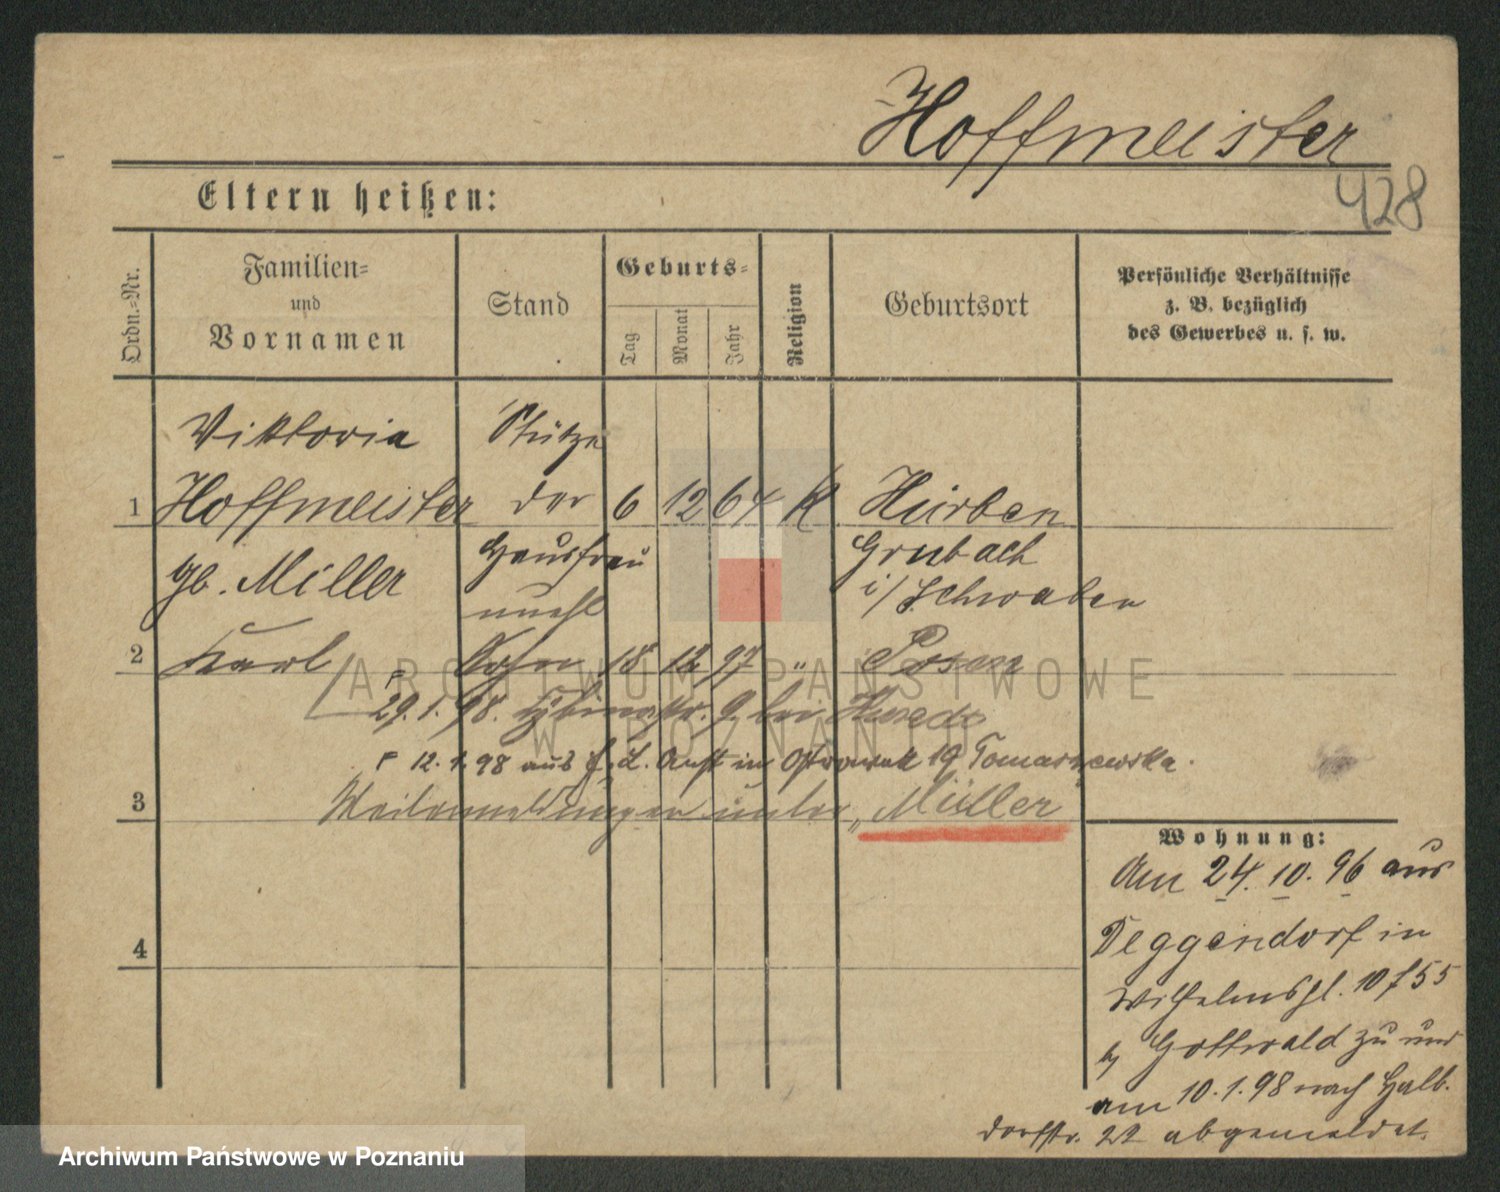 Hoffmeister
428
Eltern heißen:
Ordn.-Nr.
Familien-
und
Vornamen
Stand
Geburts-
Tag
Monat
Jahr
Religion
Geburtsort
Persönliche Verhältnisse
z. B. bezüglich
des Gewerbes u. s. w.
Viktoria Stütze
1 Hoffmeister der 6 12 64 K Hürben
gb. Miller Hausfrau Grubach
i/Schwaben
unehl
2 Karl Sohn 18 12 97 " Posen
29.1.98. 9 bei
12.1.98 aus in 19 Tomaszewska.
3 Weitermeldungen unter "Müller
4
Wohnung:
Am 24.10.96 aus
Deggendorf in
Wilhelmspl. 10 f 55
b/ Gottwald zu und
am 10.1.98 nach Halb-
dorfstr. 22 abgemeldet.
ARCHIWUM PAŃSTWOWE
W POZNANIU
Archiwum Państwowe w Poznaniu